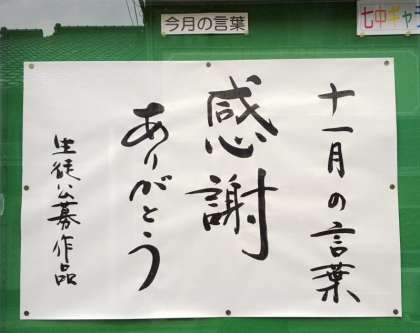 今月の言葉
七中ギャラ
十一月の言葉
感謝
ありがとう
生徒公募作品